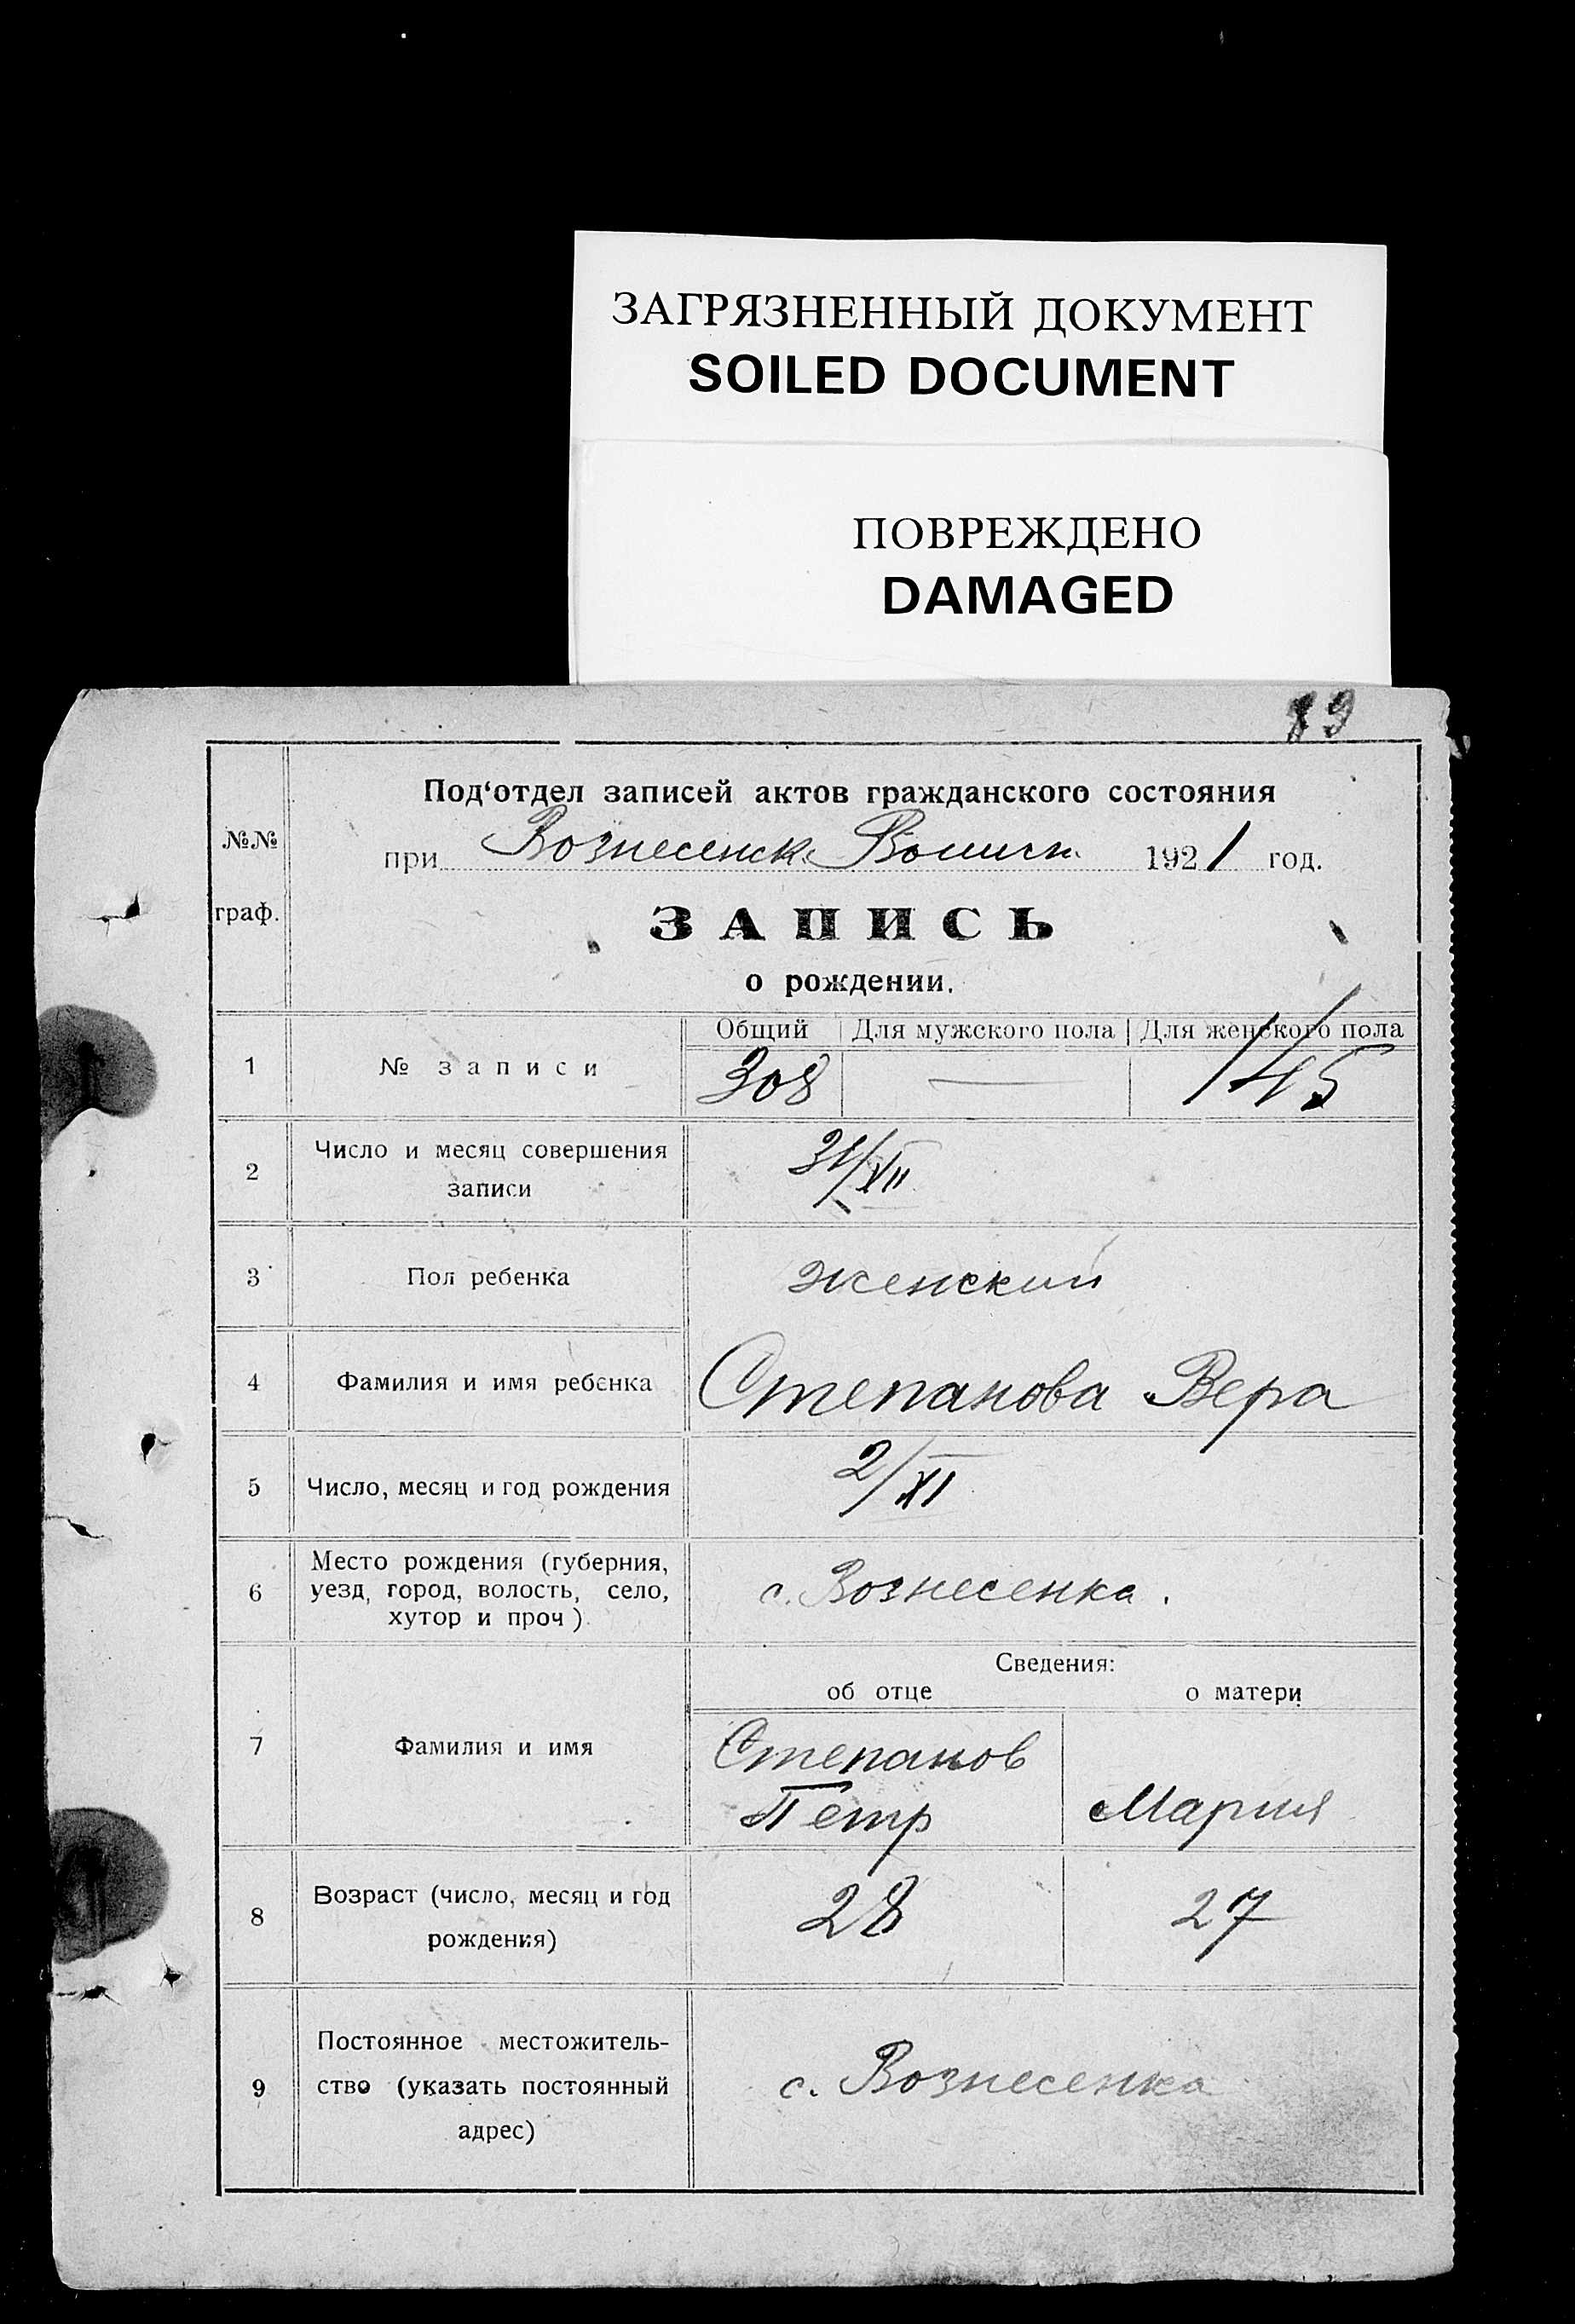 ЗАГРЯЗНЕННЫЙ ДОКУМЕНТ
SOILED DOCUMENT
ПОВРЕЖДЕНО
DAMAGED
89
Под‘отдел записей актов гражданского состояния
№№ граф.
при Вознесенск. 1921 год.
ЗАПИСЬ
о рождении.
Общий Для мужского пола Для женского пола
1 № записи 308 — 145
2 Число и месяц совершения
записи
31/XII
3 Пол ребенка женский
4 Фамилия и имя ребенка Степанова Вера
5 Число, месяц и год рождения 2/XI
6 Место рождения (губерния,
уезд, город, волость, село,
хутор и проч.)
с. Вознесенка.
Сведения:
об отце о матери
7 Фамилия и имя
Степанов
Петр Мария
8 Возраст (число, месяц и год
рождения)
28 27
9 Постоянное местожитель-
ство (указать постоянный
адрес)
с. Вознесенка